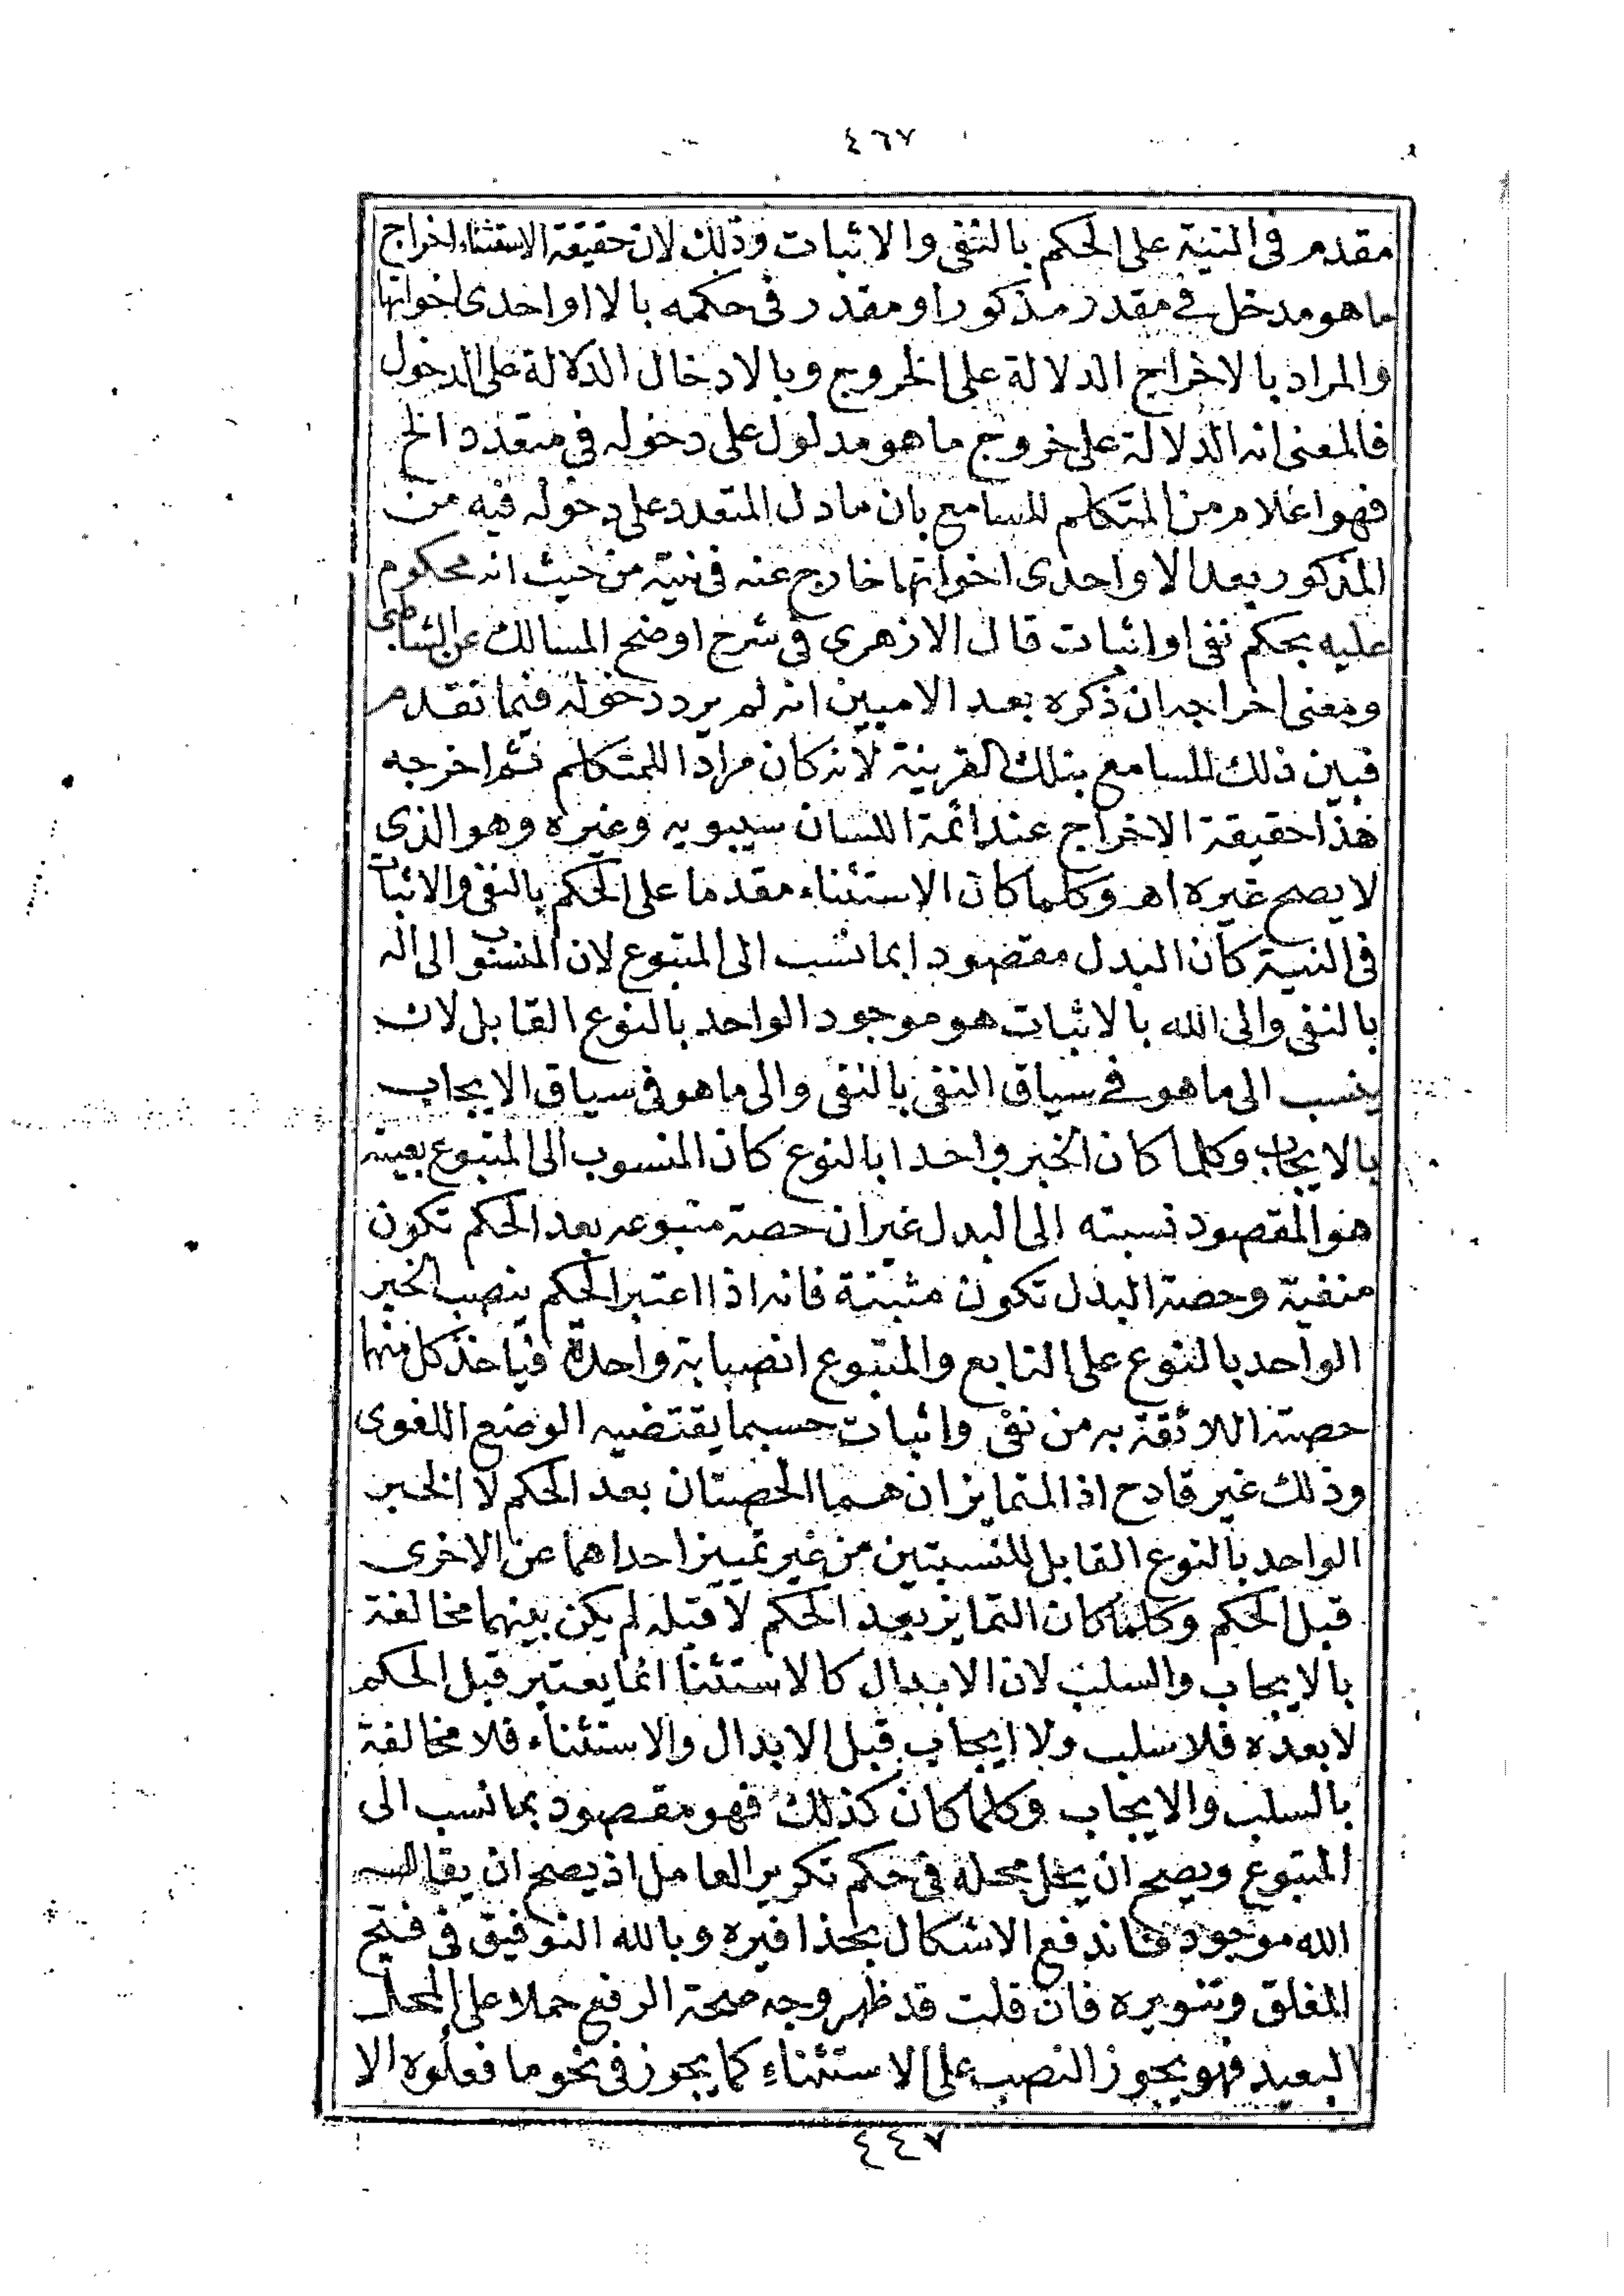 ٤٦٧
مقدم فى النية على الحكم بالنفى والاثبات وذلك لان حقيقة الاستثناء اخراج
ما هو مدخل فى مقدر مذكور او مقدر فى حكمه بالا او احدى اخواتها
والمراد بالاخراج الدلالة على الخروج وبالادخال الدلالة على الدخول
فالمعنى انه الدلالة على خروج ما هو مدلول على دخوله فى متعدد الخ
فهو اعلام من المتكلم للسامع بان ما دل المتعدد على دخوله فيه من
المذكور بعد الا واحدى اخواتها خارج عنه فى نيته من حيث انه محكوم
عليه بحكم نفى او اثبات قال الازهرى فى شرح اوضح المسالك عن الشاطبى
ومعنى اخراجه ان ذكره بعد الا مبين انه لم يرد دخوله فيما تقدم
فبين ذلك للسامع بتلك القرينة لا انه كان مرادا للمتكلم ثم اخرجه
هذا حقيقة الاخراج عند ائمة اللسان سيبويه وغيره وهو الذى
لا يصح غيره اهـ وكلما كان الاستثناء مقدما على الحكم بالنفى والاثبات
فى النية كان البدل مقصودا بما نسب الى المتبوع لان المنسوب الى اله
بالنفى والى الله بالاثبات هو موجود الواحد بالنوع القابل لان
ينسب الى ما هو فى سياق النفى بالنفى والى ما هو فى سياق الايجاب
بالايجاب وكلما كان الخبر واحدا بالنوع كان المنسوب الى المتبوع بعينه
هو المقصود نسبته الى البدل غير ان حصة متبوعه بعد الحكم تكون
منفية وحصة البدل تكون مثبتة فانه اذا اعتبر الحكم ينصب الخبر
الواحد بالنوع على التابع والمتبوع انصبابة واحدة فياخذ كل منهما
حصته اللائقة به من نفى واثبات حسبما يقتضيه الوضع اللغوى
وذلك غير قادح اذ المتمايزان هما الحصتان بعد الحكم لا الخبر
الواحد بالنوع القابل للنسبتين من غير تمييز احداهما عن الاخرى
قبل الحكم وكلما كان التمايز بعد الحكم لا قبله لم يكن بينهما مخالفة
بالايجاب والسلب لان الابدال كالاستثنا انما يعتبر قبل الحكم
لا بعده فلا سلب ولا ايجاب قبل الابدال والاستثناء فلا مخالفة
بالسلب والايجاب وكلما كان كذلك فهو مقصود بما نسب الى
المتبوع ويصح ان يحل محله فى حكم تكرير العامل اذ يصح ان يقال
الله موجود فاندفع الاشكال بحذافيره وبالله التوفيق فى فتح
المغلق وتنويره فان قلت قد ظهر وجه صحة الرفع حملا على المحل
البعيد فهو يجوز النصب على الاستثناء كما يجوز فى نحو ما فعلوه الا
٤٤٧